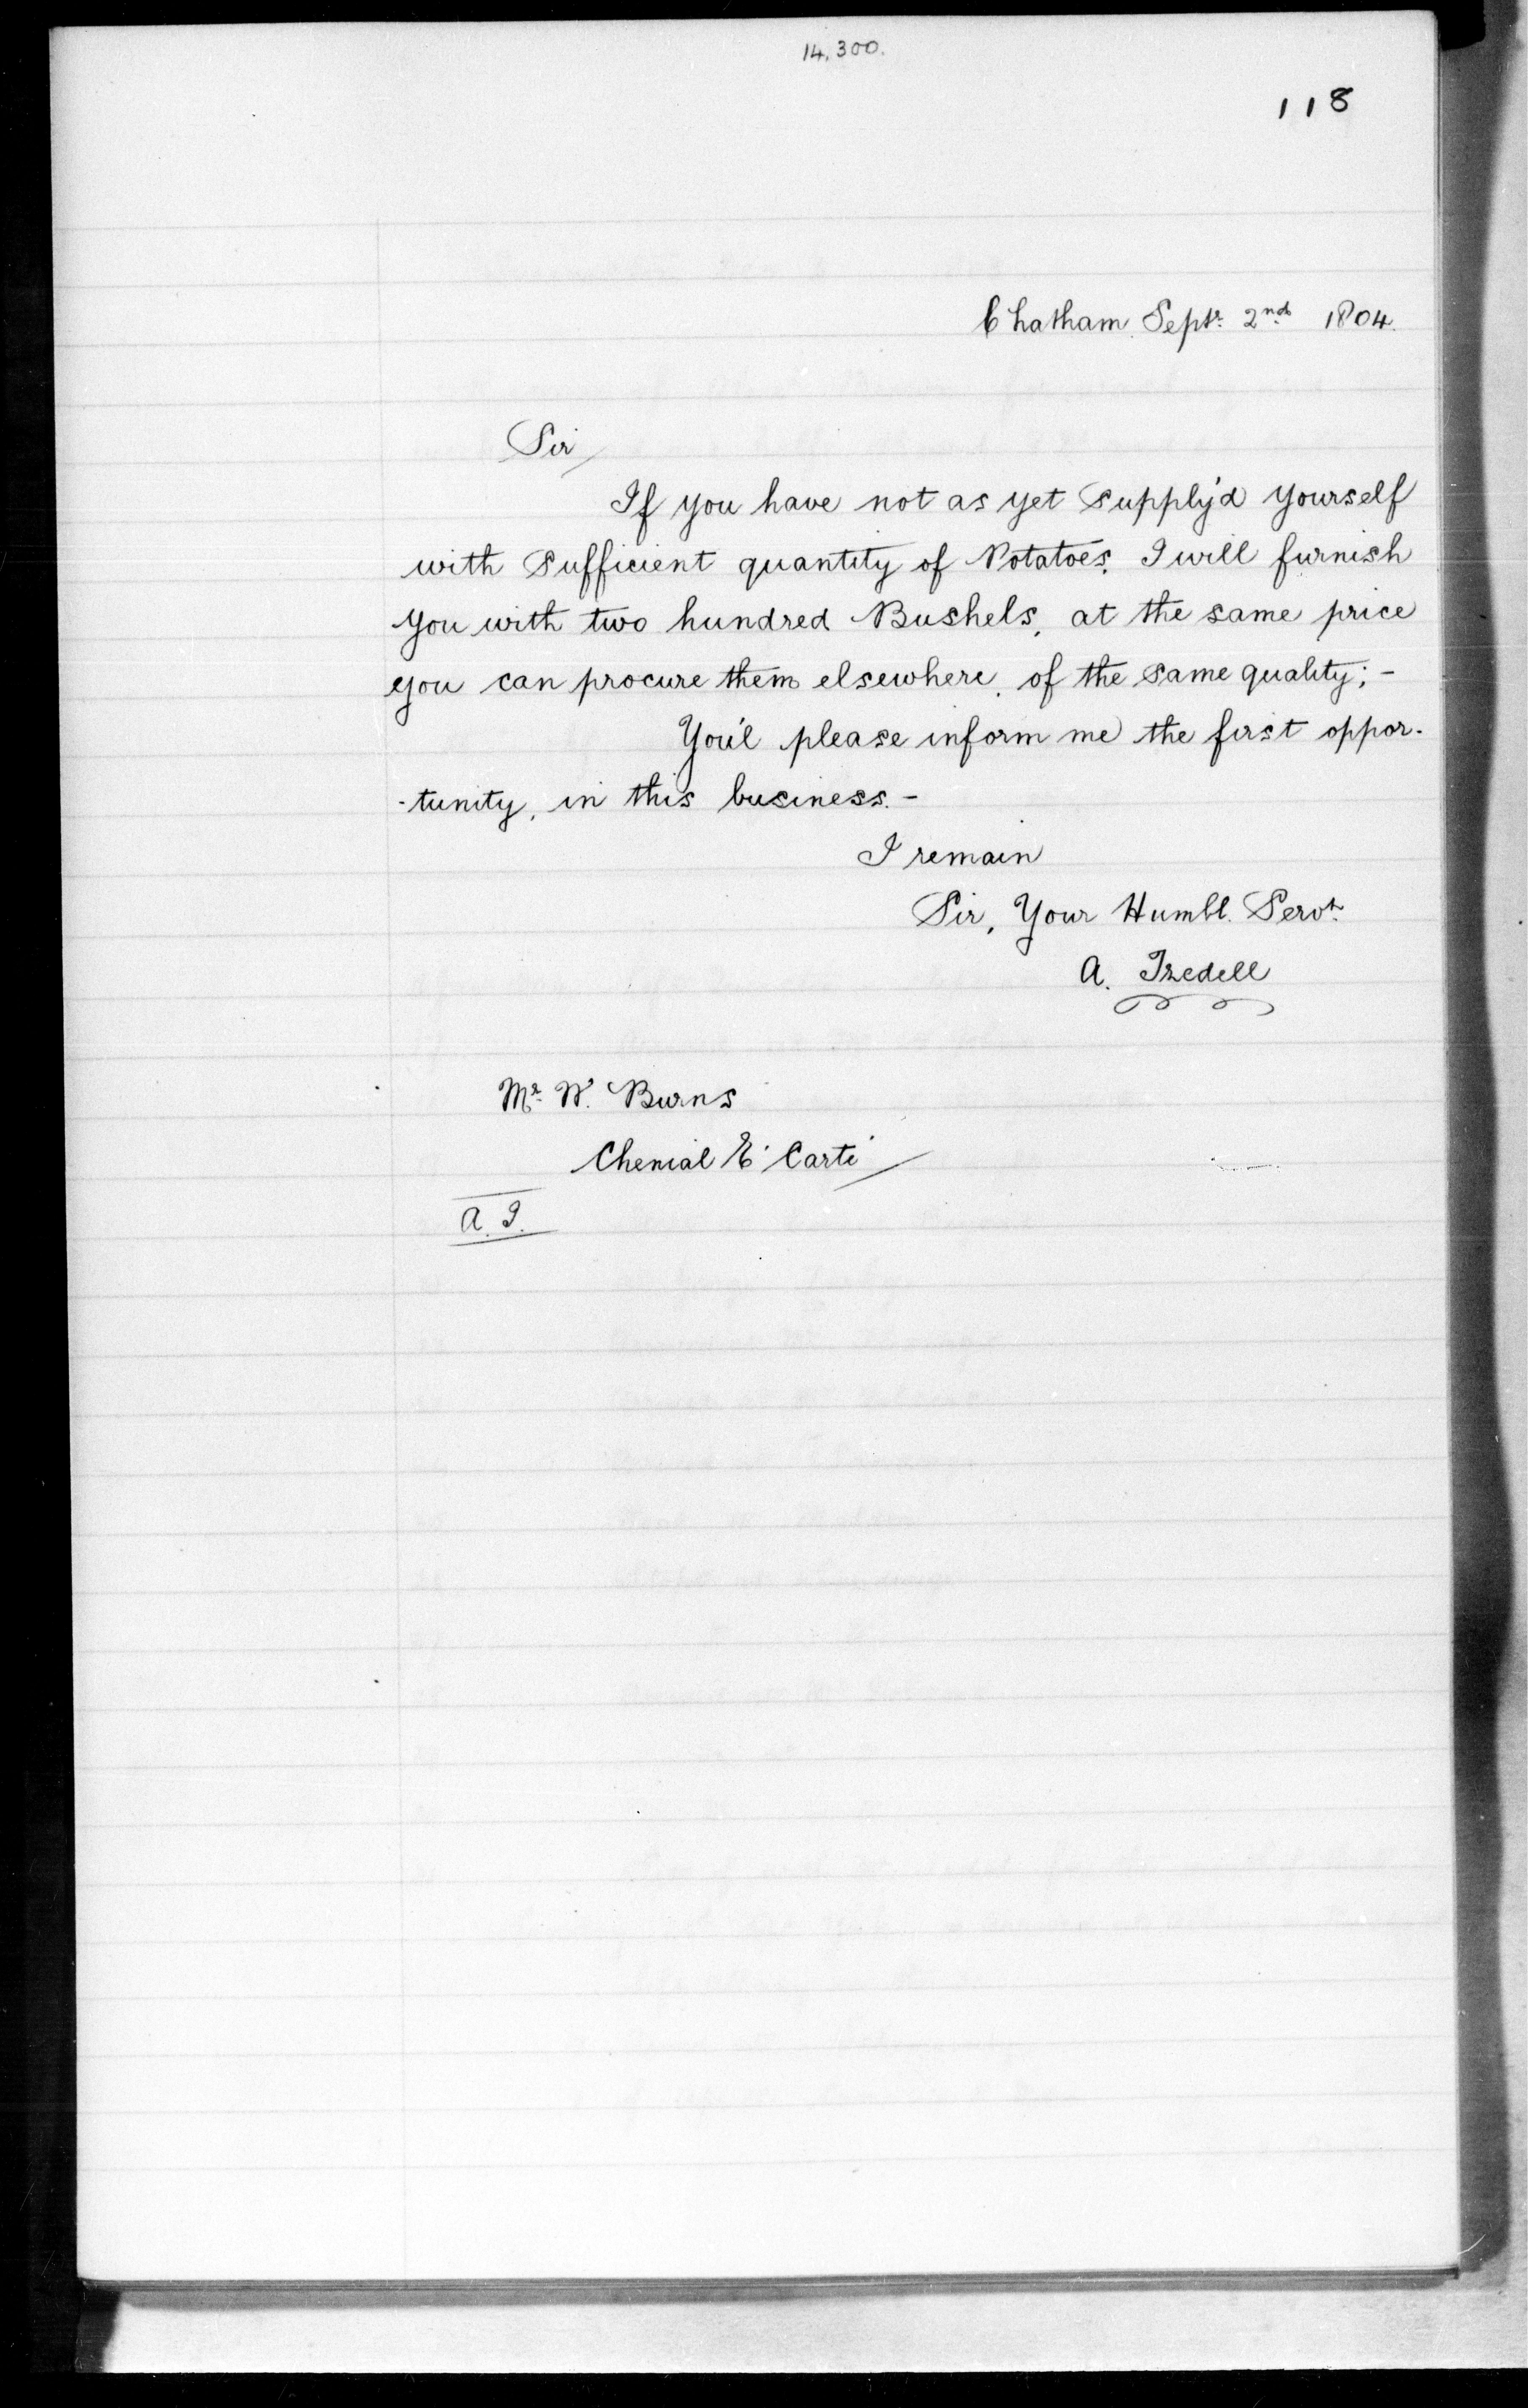 14,300.
118
Chatham Septr. 2nd 1804.
Sir
If you have not as yet supply'd yourself
with sufficient quantity of Potatoes, I will furnish
you with two hundred Bushels, at the same price
you can procure them elsewhere, of the same quality; -
You'l please inform me the first oppor-
-tunity, in this business. -
I remain
Sir, Your Humbl. Servt.
A. Iredell
Mr. W. Burns
Chenial E' Carti
A. I.